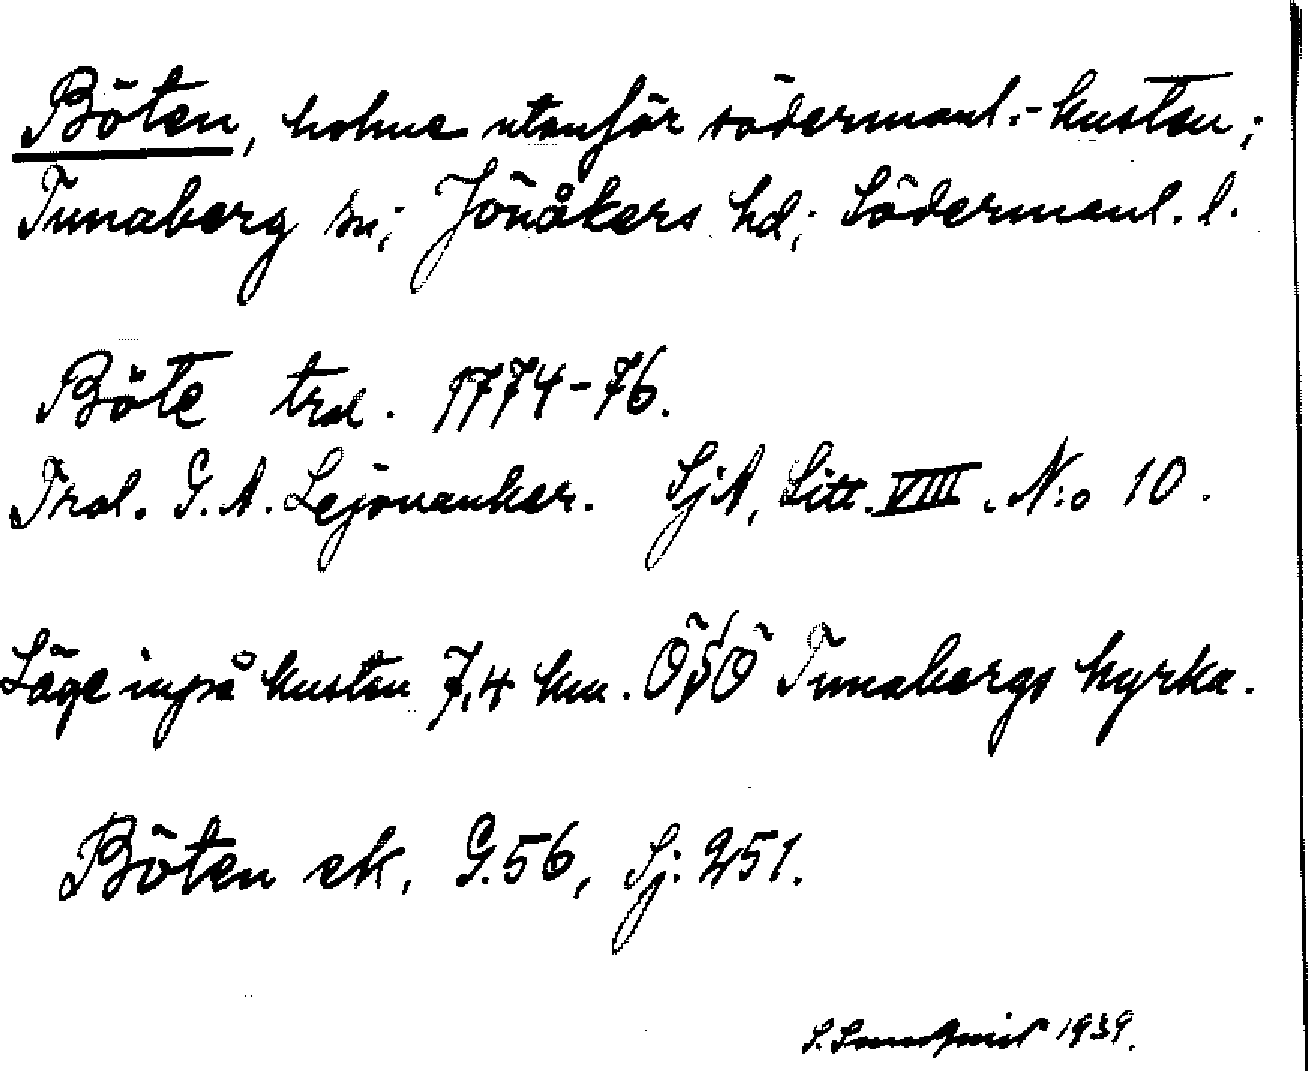 Böten, holme utanför södermanl.-kusten;
Tunaberg sn; Jönåkers hd; Södermanl. l.
Böte trol. 1774-76.
Trol. G. A. Lejonanker. SjA, Litt. VIII. N:o 10.
Läge inpå kusten 7,4 km. ÖSÖ Tunabergs kyrka.
Böten ek. G. 56, Sj: 251.
S. 1939.